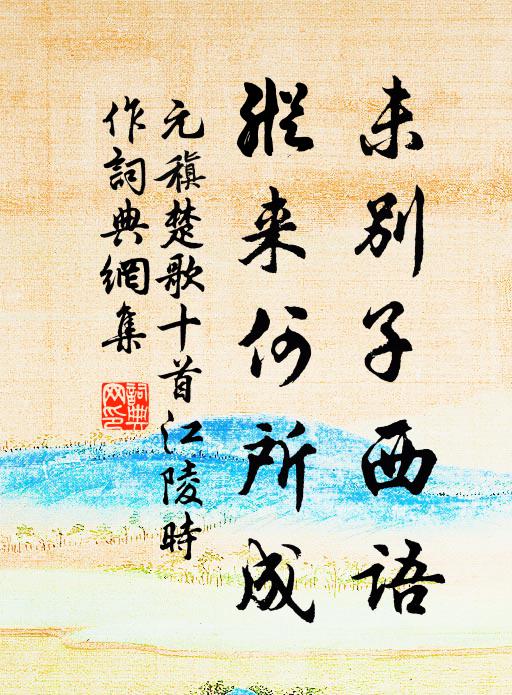 未別子西語
縱来何所成
元稹楚歌十首江陵時
作詞典網集
詞典
网印